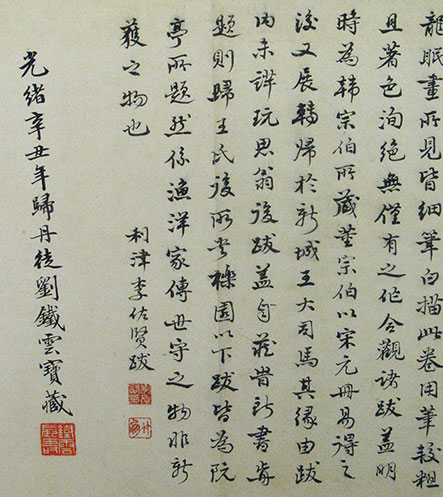 龍眠畫所見皆細筆白描此卷用筆較粗
且著色洵絕無僅有之作合觀諸跋蓋明
時為韓宗伯所藏董宗伯以宋元冊易得之
後又展轉歸於新城王大司馬其緣由跋
內未詳玩思翁後跋蓋自藏時所書前
題則歸王氏後所書櫟園以下跋皆為阮
亭所題然係漁洋家傳世守之物非新
獲之物也
利津李佐賢跋
光緒辛丑年歸丹徒劉鐵雲寶藏